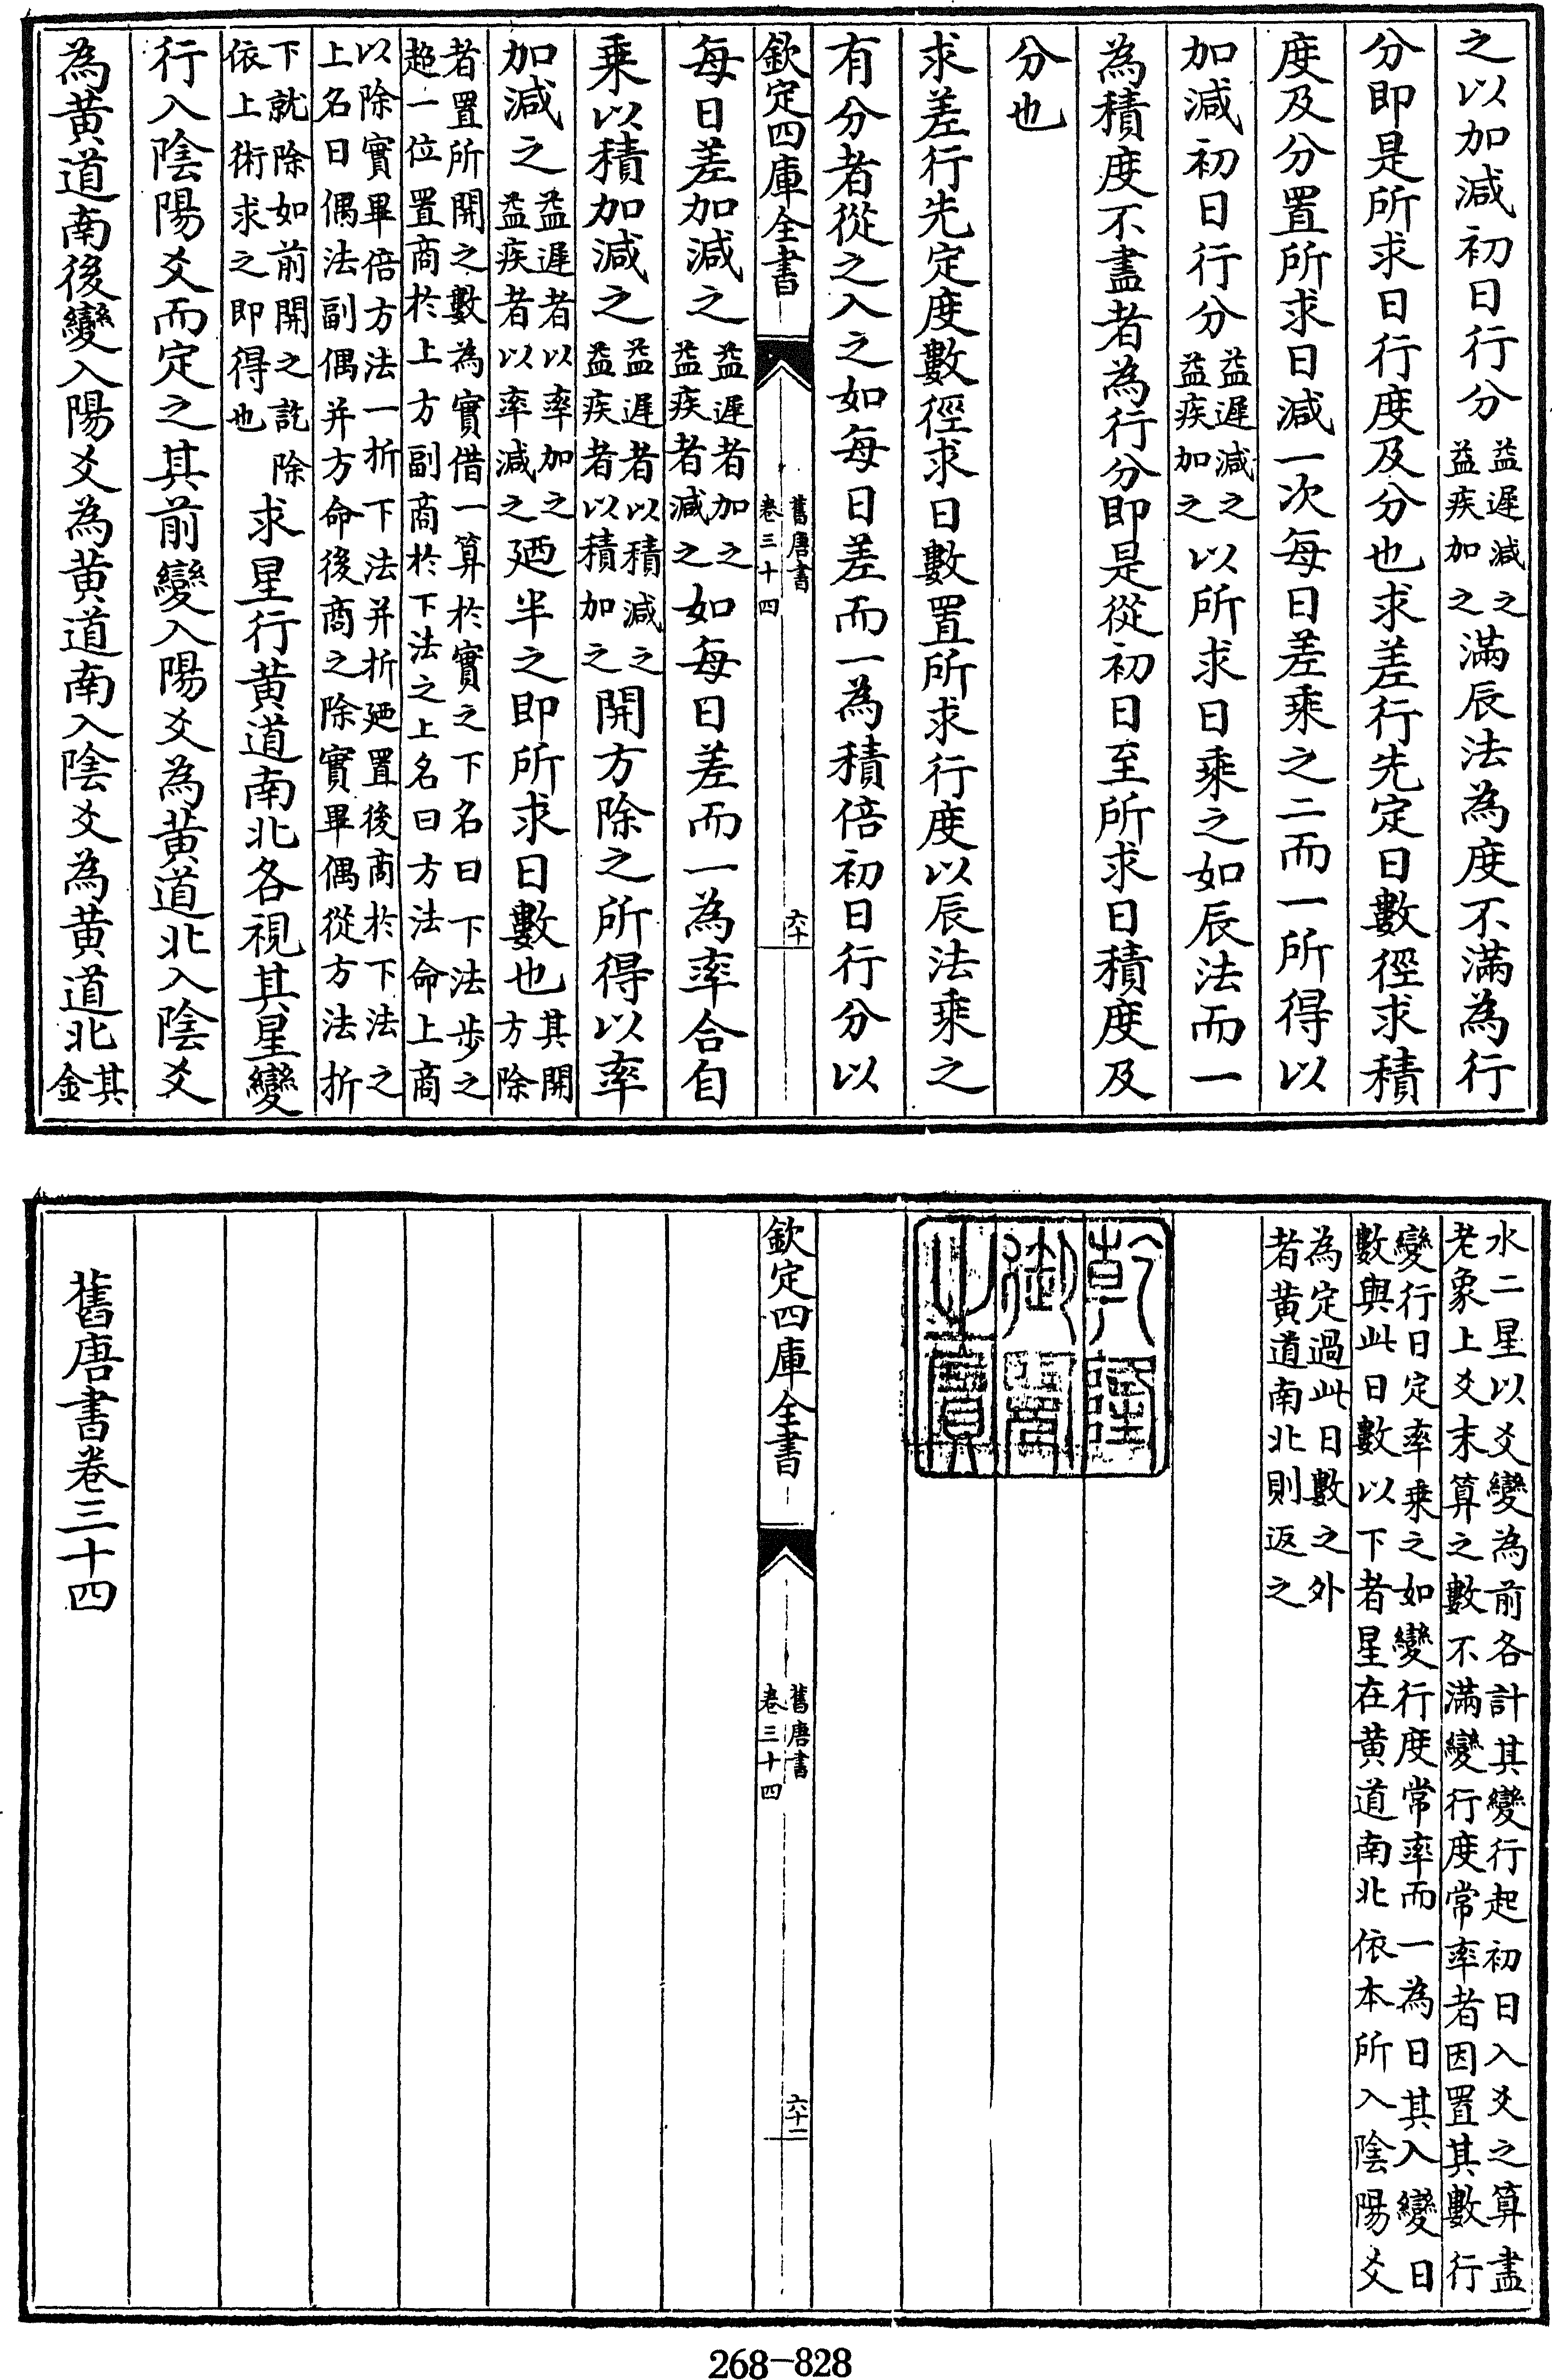 之以加減初日行分益遲減之益疾加之滿辰法為度不滿為行
分即是所求日行度及分也求差行先定日數徑求積
度及分置所求日減一次每日差乘之二而一所得以
加減初日行分益遲減之益疾加之以所求日乘之如辰法而一
為積度不盡者為行分即是從初日至所求日積度及
分也
求差行先定度數徑求日數置所求行度以辰法乘之
有分者從之入之如每日差而一為積倍初日行分以
欽定四庫全書
舊唐書
卷三十四
六十
每日差加減之益遲者加之益疾者減之如每日差而一為率合自
乘以積加減之益遲者以積減之益疾者以積加之開方除之所得以率
加減之益遲者以率加之益疾者以率減之廼半之即所求日數也其開方除
者置所開之數為實借一算於實之下名曰下法步之
超一位置商於上方副商於下法之上名曰方法命上商
以除實畢倍方法一折下法并折廼置後商於下法之
上名曰偶法副偶并方命後商之除實畢偶從方法折
下就除如前開之訖除
依上術求之即得也
求星行黄道南北各視其星變
行入陰陽爻而定之其前變入陽爻為黄道北入陰爻
為黄道南後變入陽爻為黄道南入陰爻為黄道北其金
水二星以爻變為前各計其變行起初日入爻之算盡
老象上爻末算之數不滿變行度常率者因置其數行
變行日定率乘之如變行度常率而一為日其入變日
數與此日數以下者星在黄道南北依本所入陰陽爻
為定過此日數之外
者黄道南北則返之
乾隆
御覽
之寶
欽定四庫全書
舊唐書
卷三十四
六十二
舊唐書卷三十四
268-828